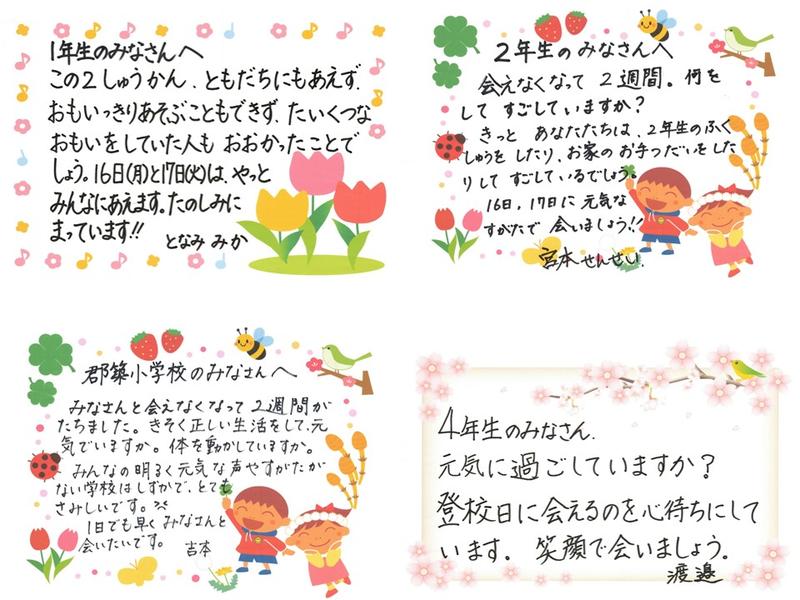 1年生のみなさんへ
この2しゅうかん、ともだちにもあえず、
おもいっきりあそぶこともできず、たいくつな
おもいをしていた人も おおかったことで
しょう。16日(月)と17日(火)は、やっと
みんなにあえます。たのしみに
まっています!!
となみ みか
2年生の みなさんへ
会えなくなって 2週間。何を
して すごしていますか?
きっと あなたたちは、2年生のふく
しゅうを したり、お家の お手つだいをした
りして すごしているでしょう。
16日、17日に 元気な
すがたで 会いましょう!!
宮本せんせい
郡築小学校のみなさんへ
みなさんと会えなくなって 2週間が
たちました。きそく正しい生活をして、元
気でいますか。体を動かしていますか。
みんなの明るく元気な声やすがたが
ない学校はしずかで、とても
さみしいです。
1日でも早く みなさんと
会いたいです。 吉本
4年生のみなさん、
元気に過ごしていますか?
登校日に会えるのを心待ちにして
います。 笑顔で会いましょう。
渡邉